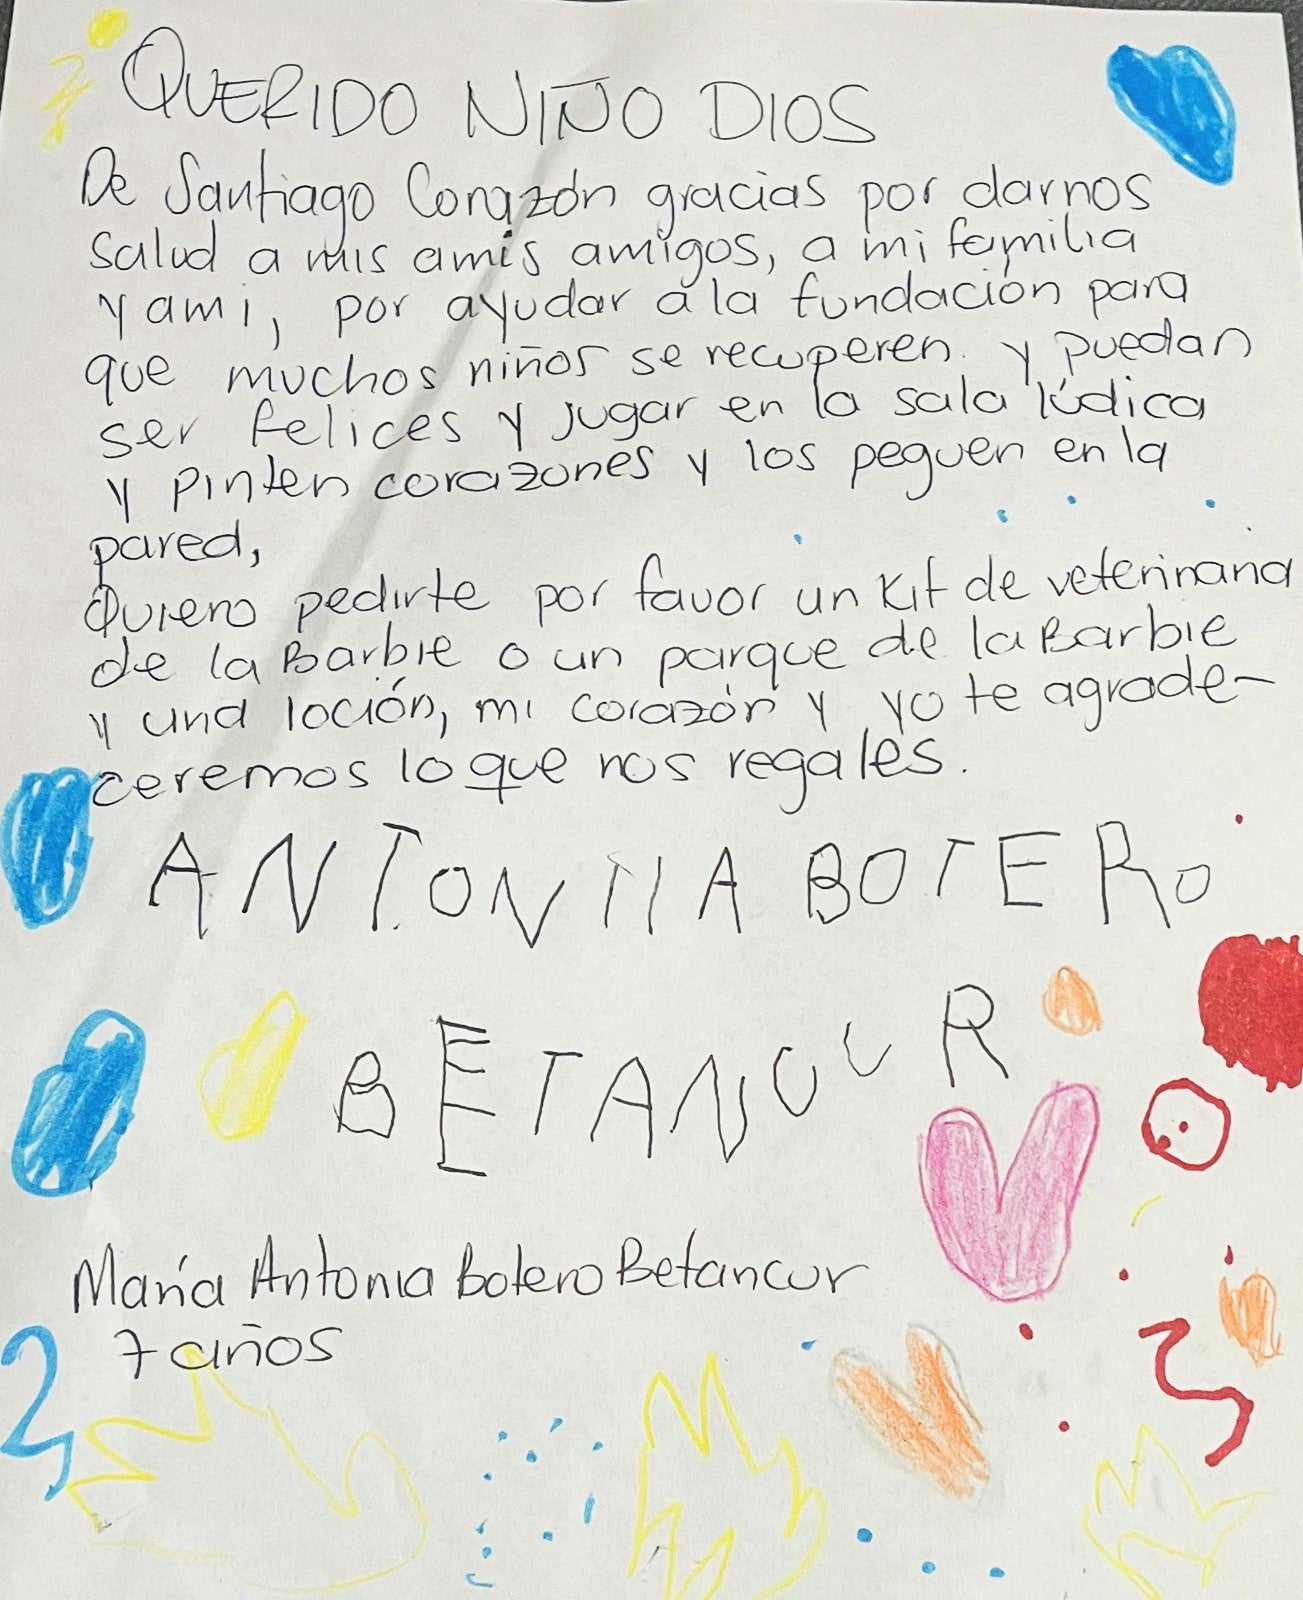 QUERIDO NIÑO DIOS
De Santiago Corazón gracias por darnos
salud a mis amis amigos, a mi familia
y ami, por ayudar a la fundación para
que muchos niños se recuperen y puedan
ser felices y jugar en la sala lúdica
y pinten corazones y los peguen en la
pared,
Quiero pedirte por favor un kit de veterinaria
de la Barbie o un parque de la Barbie
y una loción, mi corazón y yo te agrade-
ceremos lo que nos regales.
ANTONIIA BOTERO
BETANCUR
María Antonia Botero Betancur
7 años